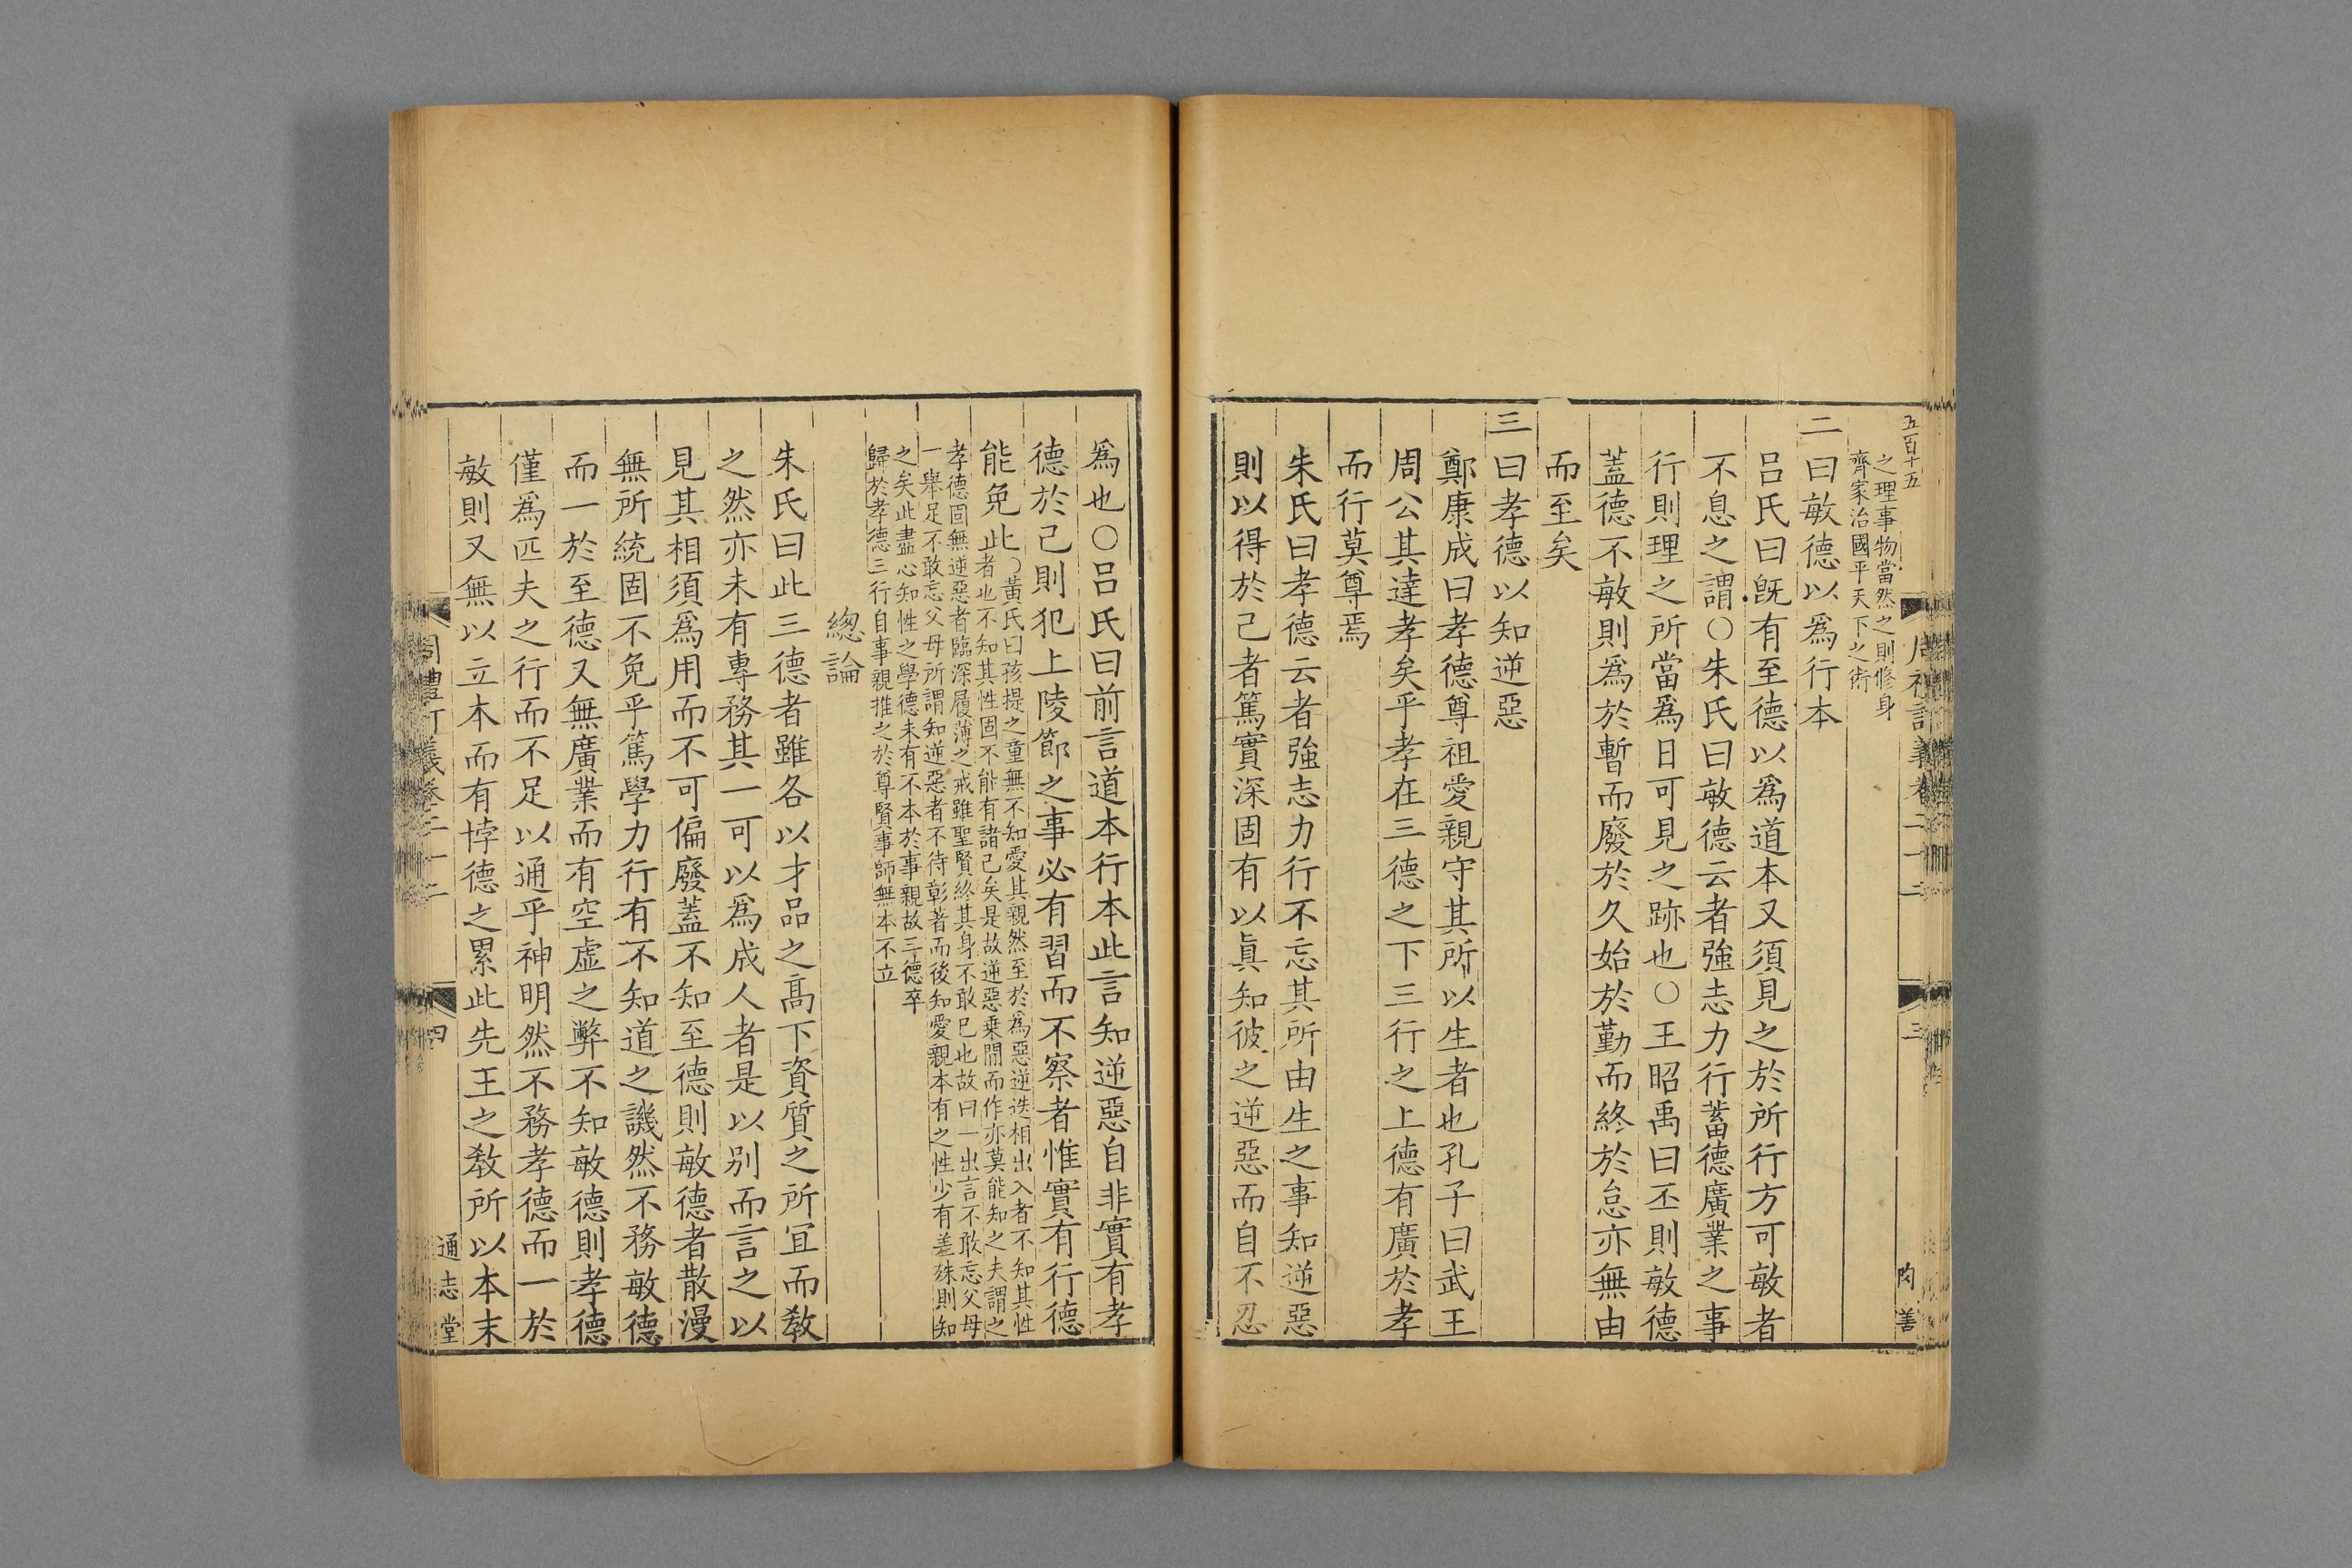 五百十五
之理事物當然之則修身
齊家治國平天下之術
二曰敏德以為行本
呂氏曰旣有至德以為道本又須見之於所行方可敏者
不息之謂○朱氏曰敏德云者強志力行蓄德廣業之事
行則理之所當為日可見之跡也○王昭禹曰丕則敏德
蓋德不敏則為於暫而廢於久始於勤而終於怠亦無由
而至矣
三曰孝德以知逆惡
鄭康成曰孝德尊祖愛親守其所以生者也孔子曰武王
周公其達孝矣乎孝在三德之下三行之上德有廣於孝
而行莫尊焉
朱氏曰孝德云者強志力行不忘其所由生之事知逆惡
則以得於己者篤實深固有以眞知彼之逆惡而自不忍
三
為也○呂氏曰前言道本行本此言知逆惡自非實有孝
德於己則犯上陵節之事必有習而不察者惟實有行德
能免此○黃氏曰孩提之童無不知愛其親然至於為惡逆迭相出入者不知其性
者也不知其性固不能有諸己矣是故逆惡乗閒而作亦莫能知之夫謂之
孝德固無逆惡者臨深履薄之戒雖聖賢終其身不敢已也故曰一出言不敢忘父母
一舉足不敢忘父母所謂知逆惡者不待彰著而後知愛親本有之性少有差殊則知
之矣此盡心知性之學德未有不本於事親故三德卒
歸於孝德三行自事親推之於尊賢事師無本不立
緫論
朱氏曰此三德者雖各以才品之髙下資質之所宜而敎
之然亦未有專務其一可以為成人者是以别而言之以
見其相須為用而不可偏廢蓋不知至德則敏德者散漫
無所統固不免乎篤學力行有不知道之譏然不務敏德
而一於至德又無廣業而有空虛之弊不知敏德則孝德
僅為匹夫之行而不足以通乎神明然不務孝德而一於
敏則又無以立本而有悖德之累此先王之敎所以本末
周禮訂義卷二十二
四
通志堂